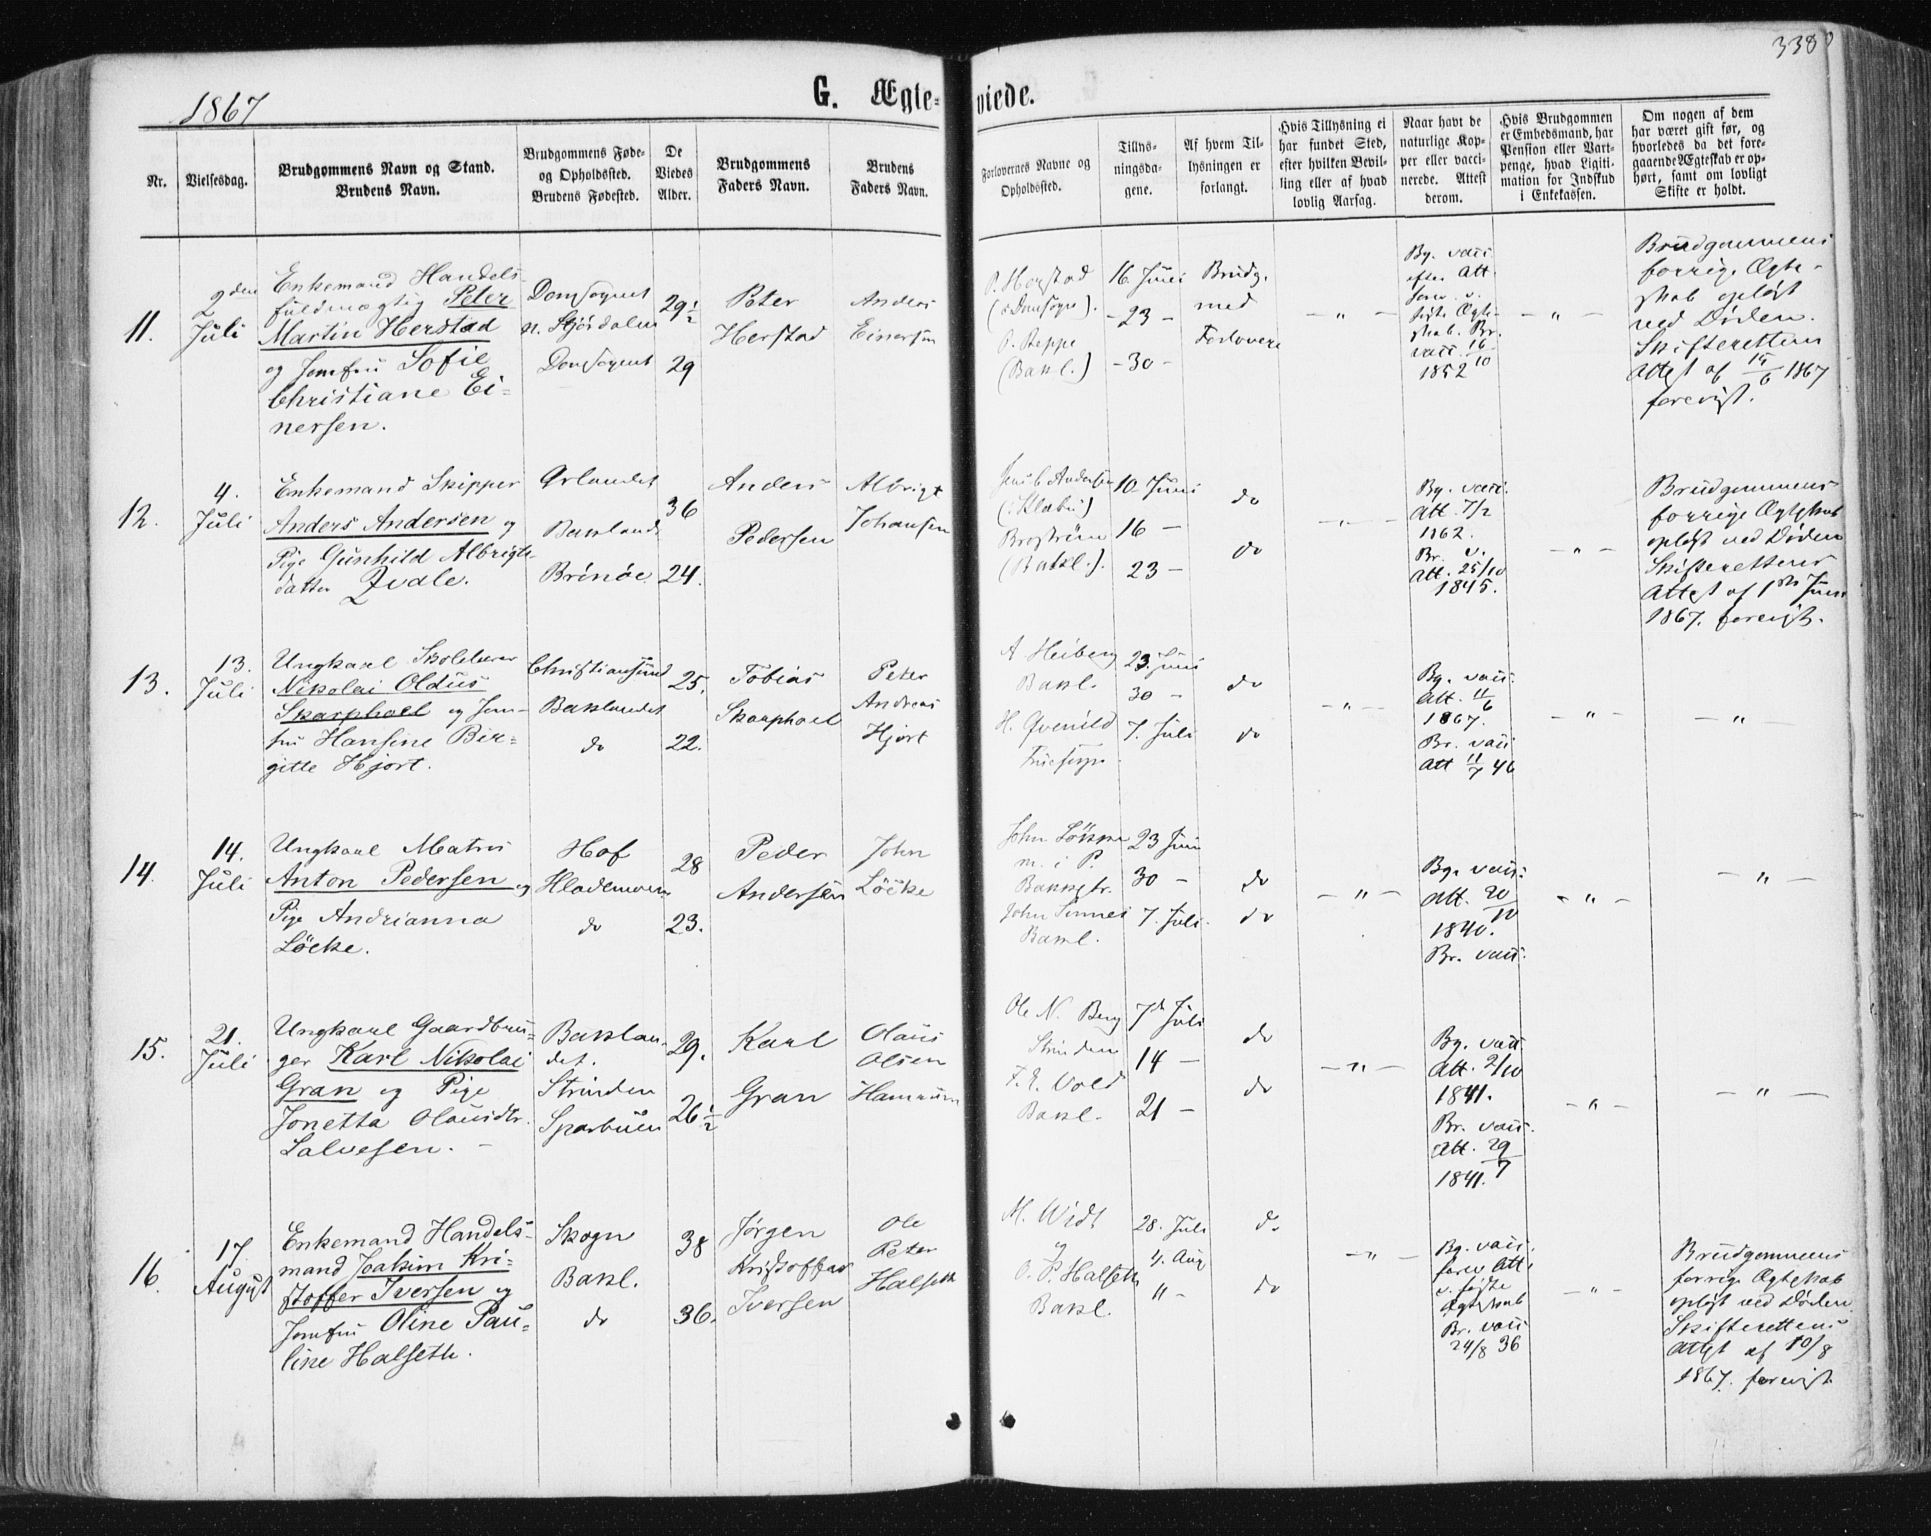 338
1867
G. Ægte-viede.
Nr.
Vielsesdag.
Brudgommens Navn og Stand.
Brudens Navn.
Brudgommens Føde-
og Opholdssted.
Brudens Fødested.
De
Viedes
Alder.
Brudgommens
Faders Navn.
Brudens
Faders Navn.
Forlovernes Navne og
Opholdssted.
Tillys-
ningsda-
gene.
Af hvem Til-
lysningen er
forlangt.
Hvis Tillysning ei
har fundet Sted,
efter hvilken Bevil-
ling eller af hvad
lovlig Aarsag.
Naar havt de
naturlige Kop-
per eller vacci-
nerede. Attest
derom.
Hvis Brudgommen
er Embedsmand, har
Pension eller Vart-
penge, hvad Ligiti-
mation for Indskud
i Enkekassen.
Om nogen af dem
har været gift før, og
hvorledes da det fore-
gaaende Ægteskab er op-
hørt, samt om lovligt
Skifte er holdt.
11.
2den
Juli
Enkemand Handels-
fuldmægtig Peter
Martin Herstad
og Jomfru Sofie
Christiane Ei-
nersen.
Domsognet
n. Stjørdalen
Domsognet
29½
29
Peter
Herstad
Anders
Einersen
P. Herstad
(Domsogn).
P. Reppe
(Bakl.)
16. Juni
-23-
-30-
Brudg.
med
Forlovere
-"-
Bg. vacc.
efter Att.
Br.
vacc. 16/10
1852
-"-
Brudgommens
forrige Ægte-
skab opløst
ved Døden.
Skifterettens
Attest af 15/6 1867
forevist.
12.
4.
Juli
Enkemand Skipper
Anders Andersen og
Pige Gunhild Albrigts-
datter Qvale.
Ørlandet
Baklandet
Brönöe
36
24.
Anders
Pedersen
Albrigt
Johansen
Andersen
(i Klæbu)
Broström
(Bakl.).
10. Juni
16 -
23 -
do
do
-"-
Bg. vacc.
Att. 7/2
1862.
Br. v.
Att. 25/10
1845.
-"-
Brudgommens
forrige Ægteskab
opløst ved Døden
Skifterettens
Attest af 1ste Juni
1867. forevist.
13.
13.
Juli
Ungkarl Skolelærer
Nikolai Oldus
Skarpholt og Jom-
fru Hansine Bir-
gitte Hjort.
Christiansund
Baklandet
do
25.
22.
Tobias
Skarpholt
Peter
Andreas
Hjort
A Heiberg
Bakl.
H. Qvenild
Fruesogn
23. Juni
30 -
7. Juli
do
do
-"-
Bg. vacc.
Att. 11/6
1867.
Br. vacc
Att 11/7 46
-"-
-"-
14.
14.
Juli
Ungkarl Matros
Anton Pedersen og
Pige Andrianna
Löcke.
Hof
Hlademoen
do
28
23.
Peder
Andersen
John
Löcke
John
m. i P.
John Sinnes
Bakl.
23 Juni
30 -
7. Juli
do
do
-"-
Bg. vacc.
Att. 20/10
1840.
Br. vacc.
-"-
-"-
15.
21.
Juli
Ungkarl Gaardbru-
ger Karl Nikolai
Gran og Pige
Jonetta Olausdtr.
Salvesen. -
Baklan-
det.
Strinden
Sparbuen
29.
26½
Karl
Gran
Olaus
Olsen
Hammum
Ole N. Berg
Strinden
F. E. Vold
Bakl.
7d Juli
14 -
21 -
do
do
-"-
Bg. vacc
Att. 2/10
1841.
Br. vacc.
Att. 29/7
1841.
-"-
-"-
16.
17
August
Enkemand Handels-
mand Joakim Kri-
stoffer Iversen og
Jomfru Oline Pau-
line Halseth.
Skogn
Bakl.
do
38
36.
Jørgen
Kristoffer
Iversen
Ole
Peter
Halseth
M. Widt
og
O. P. Halseth
Bakl.
28. Juli
4. Aug
" -
do
do
-"-
Bg. vacc.
forev. Att.
v. første
Ægteskab
Br. vacc
24/8 36
-"-
Brudgommens
forrige Ægteskab
opløst ved Døden
Skifterettens
Attest af 10/8
1867. forevist.